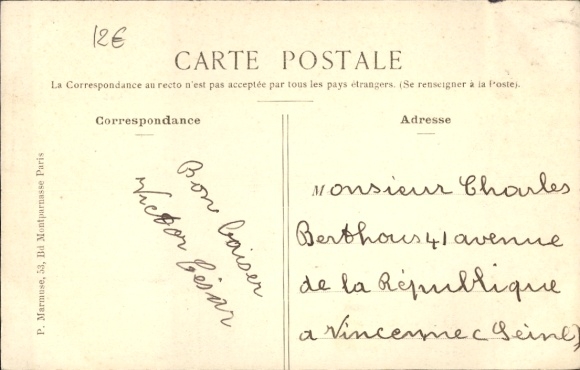 12€
CARTE POSTALE
La Correspondance au recto n'est pas acceptée par tous les pays étrangers. (Se renseigner à la Poste).
Correspondance
Adresse
P. Marmuse, 53, Bd Montparnasse Paris
Bon baiser
Victor César
Monsieur Charles
Berthous 41 avenue
de la République
a Vincenne (Seine)